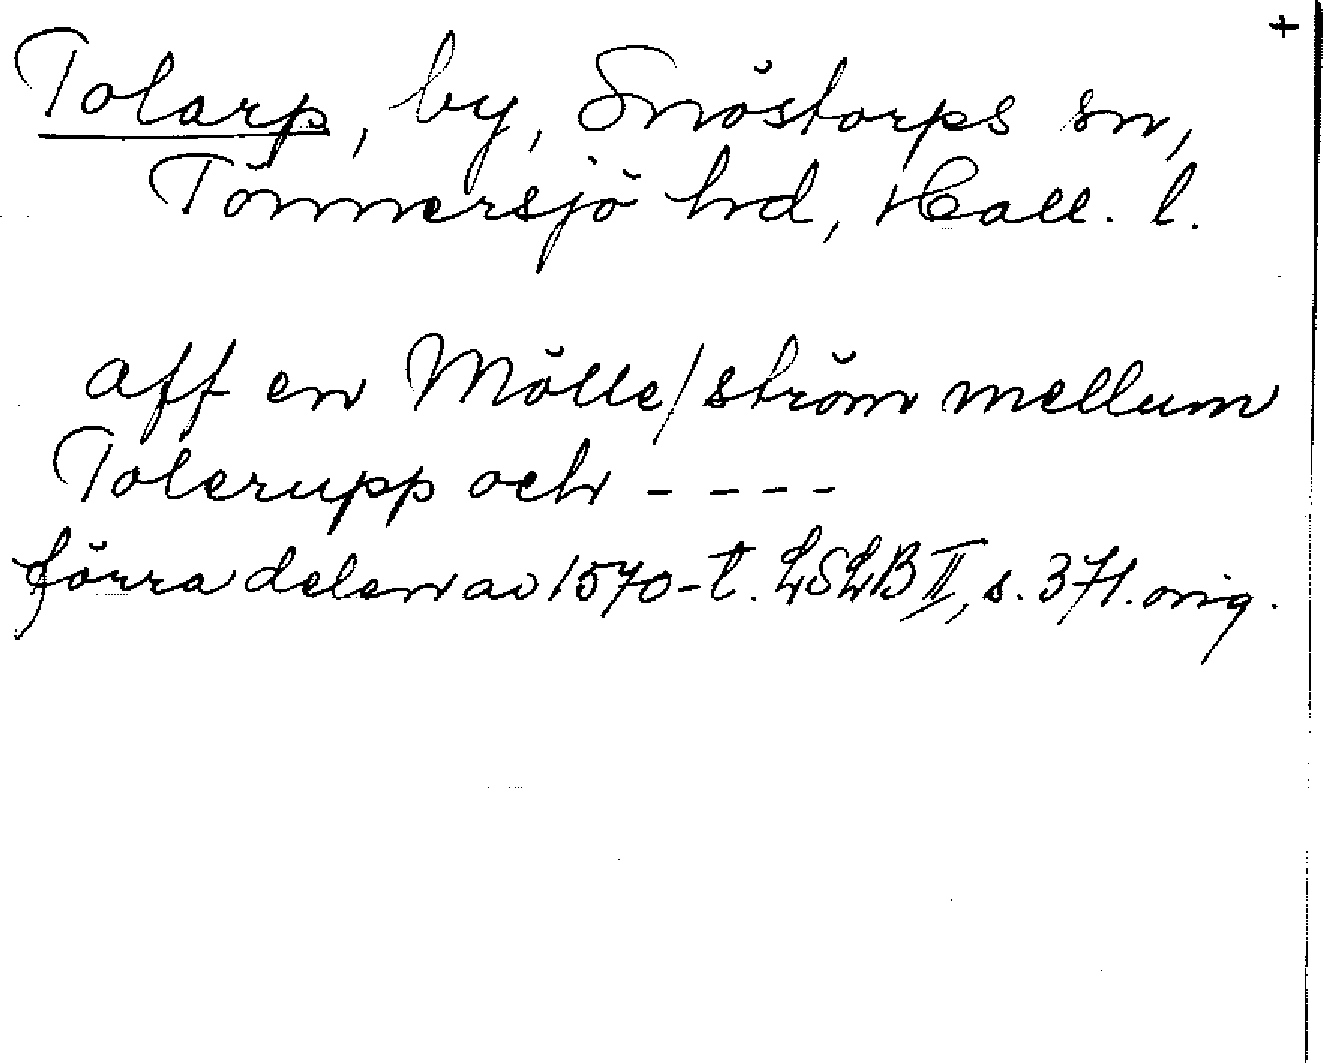 +
Tolarp, by, Snöstorps sn,
Tönnersjö hd, Hall. l.
aff en Mölle/ström mellum
Tolerupp och - - - -
förra delen av 1570-t. LSLB II, s. 371. orig.